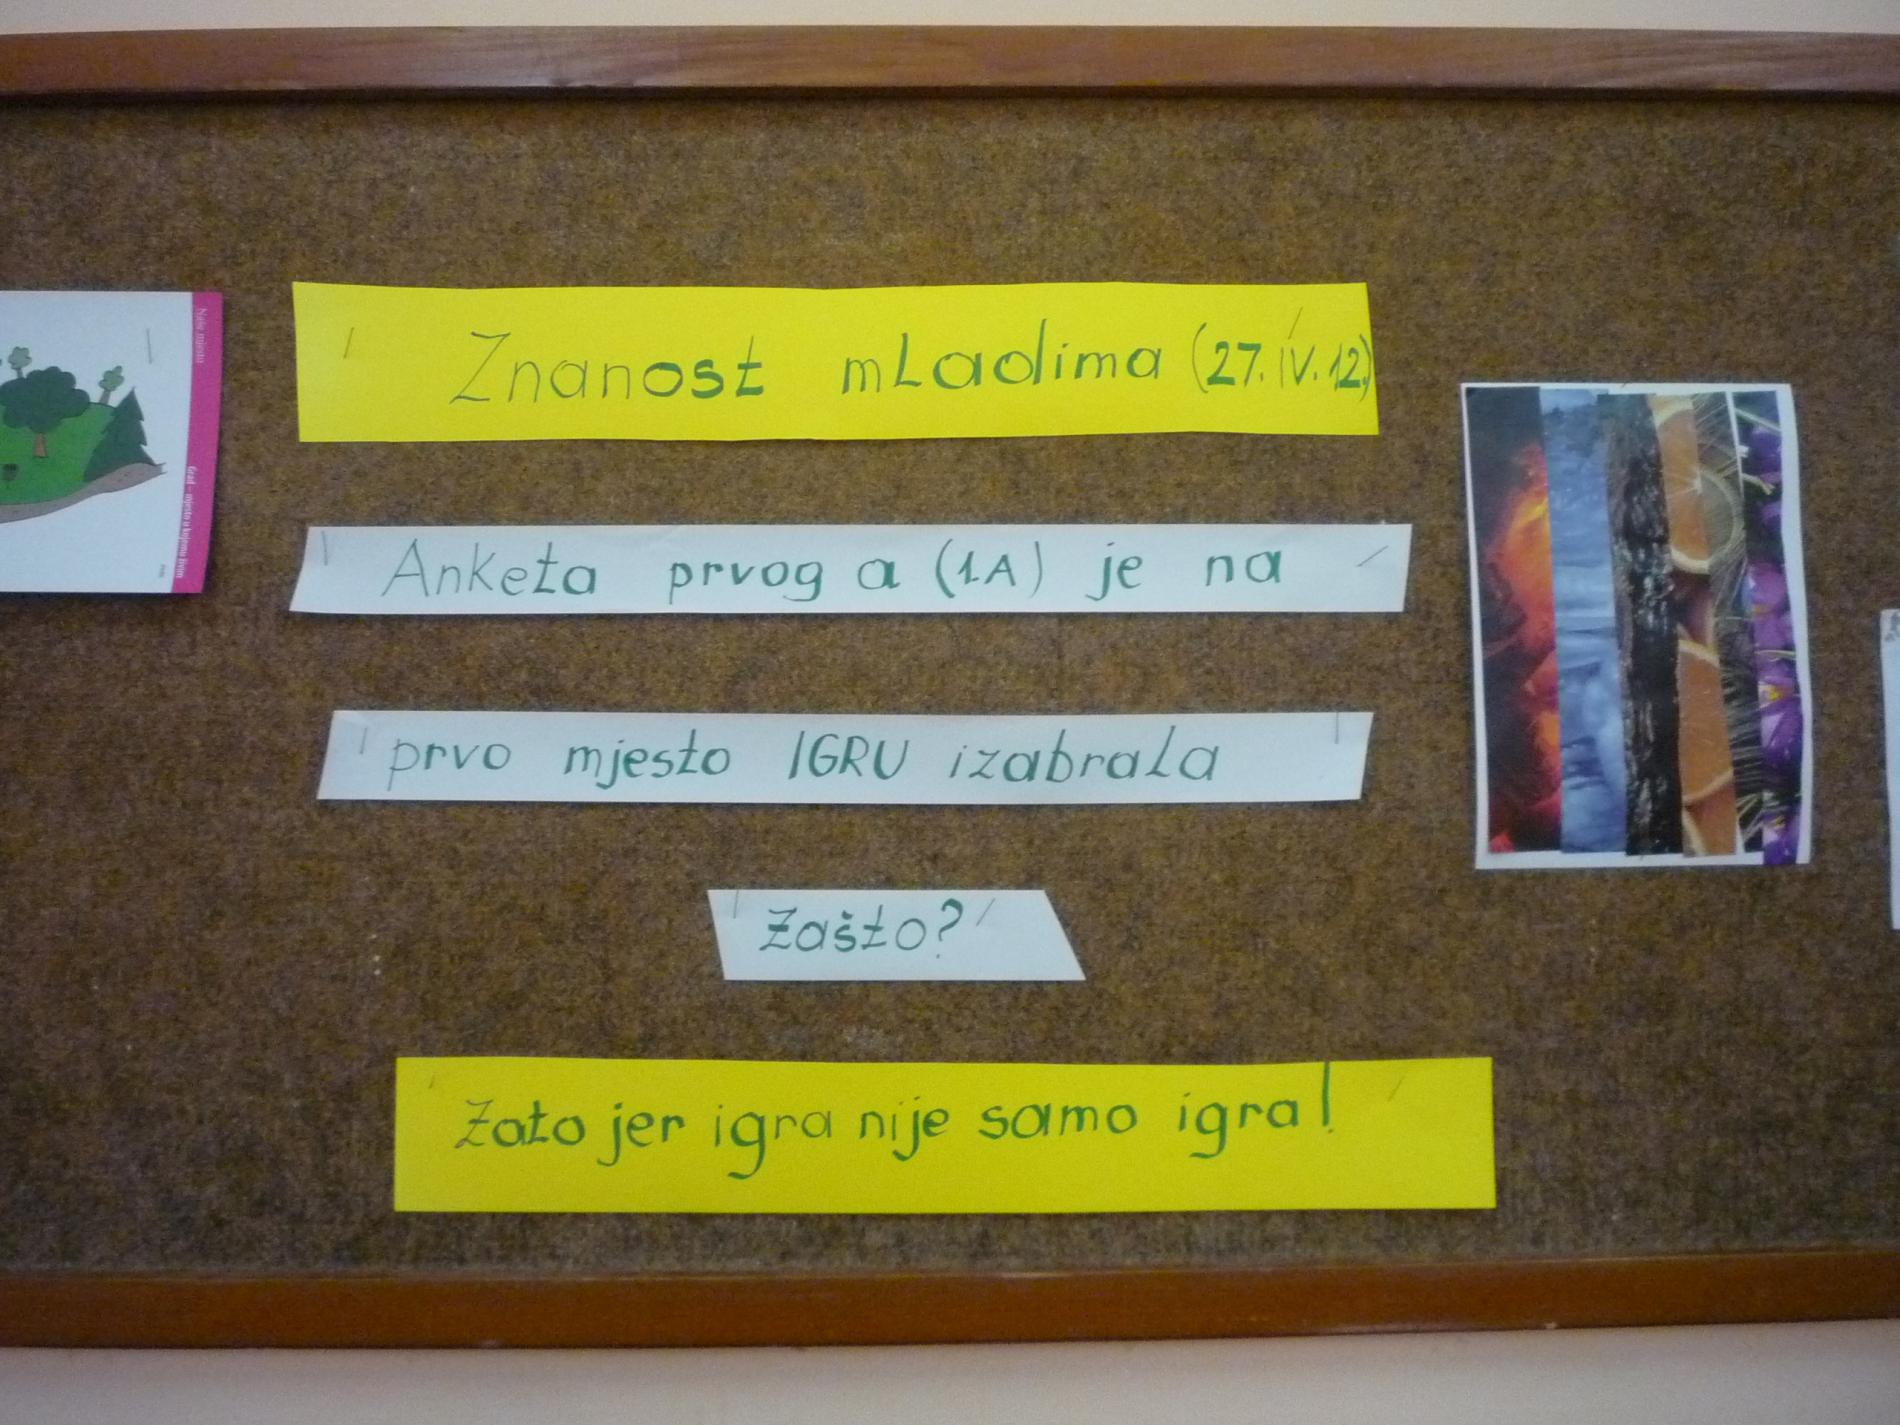 Znanost mladima (27. IV. 12.)
Anketa prvog a (1.A) je na
prvo mjesto IGRU izabrala
Zašto?
Zato jer igra nije samo igra!
Naše mjesto
Grad - mjesto u kojemu živim